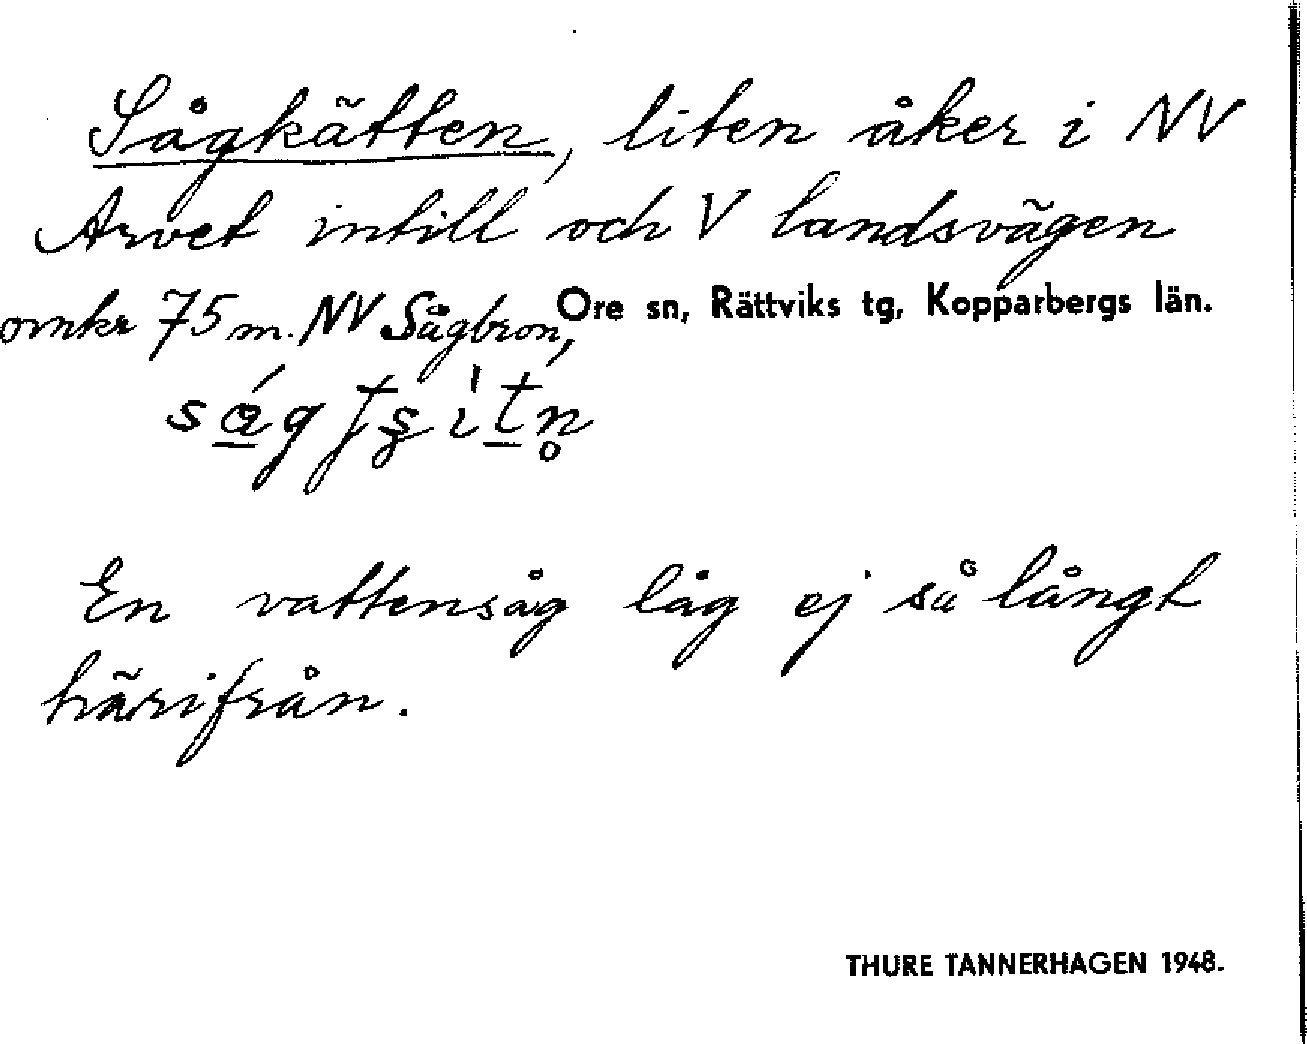 Sågkätten, liten åker i NV
Arvet intill och V landsvägen
omkr 75 m. NV Sågbron, Ore sn, Rättviks tg, Kopparbergs län.
En vattensåg låg ej så långt
härifrån.
THURE TANNERHAGEN 1948.